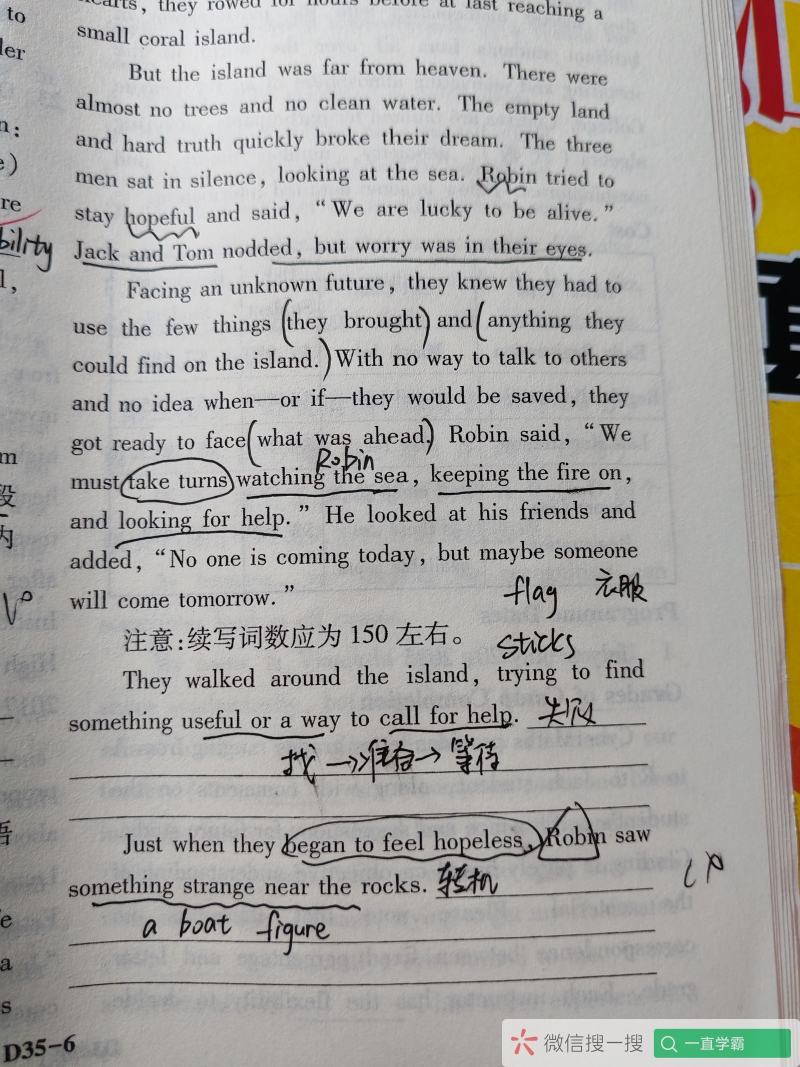 to
der
n:
e)
re
bility
l,
m
段
内
语
e
a
s
hearts, they rowed for hours before at last reaching a
small coral island.
But the island was far from heaven. There were
almost no trees and no clean water. The empty land
and hard truth quickly broke their dream. The three
men sat in silence, looking at the sea. Robin tried to
stay hopeful and said, “We are lucky to be alive.”
Jack and Tom nodded, but worry was in their eyes.
Facing an unknown future, they knew they had to
use the few things (they brought) and (anything they
could find on the island.) With no way to talk to others
and no idea when—or if—they would be saved, they
got ready to face (what was ahead.) Robin said, “We
Robin
must take turns watching the sea, keeping the fire on,
and looking for help.” He looked at his friends and
added, “No one is coming today, but maybe someone
will come tomorrow.”
flag 衣服
注意:续写词数应为 150 左右。
sticks
They walked around the island, trying to find
something useful or a way to call for help. 失败
找 → 准备 → 等待
Just when they began to feel hopeless, Robin saw
something strange near the rocks. 转机
a boat figure
D35-6
微信搜一搜
一直学霸